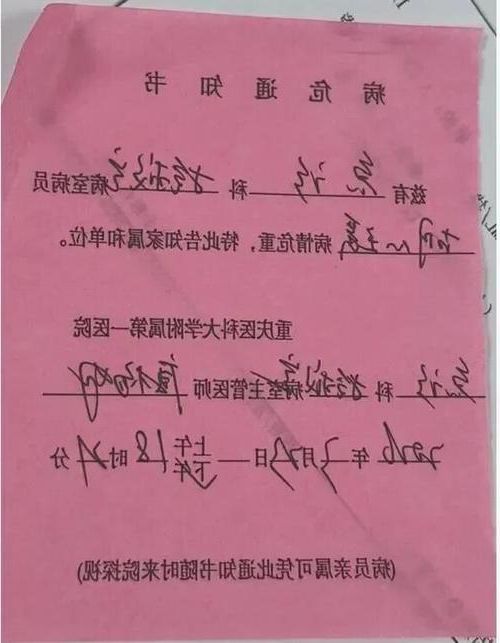 病危通知书
兹有 急诊 科 抢救室 病室病员
病情危重，特此告知家属和单位。
重庆医科大学附属第一医院
急诊 科 抢救室 病室主管医师
年 月 日 上午 下午 18 时 分
(病员亲属可凭此通知书随时来院探视)